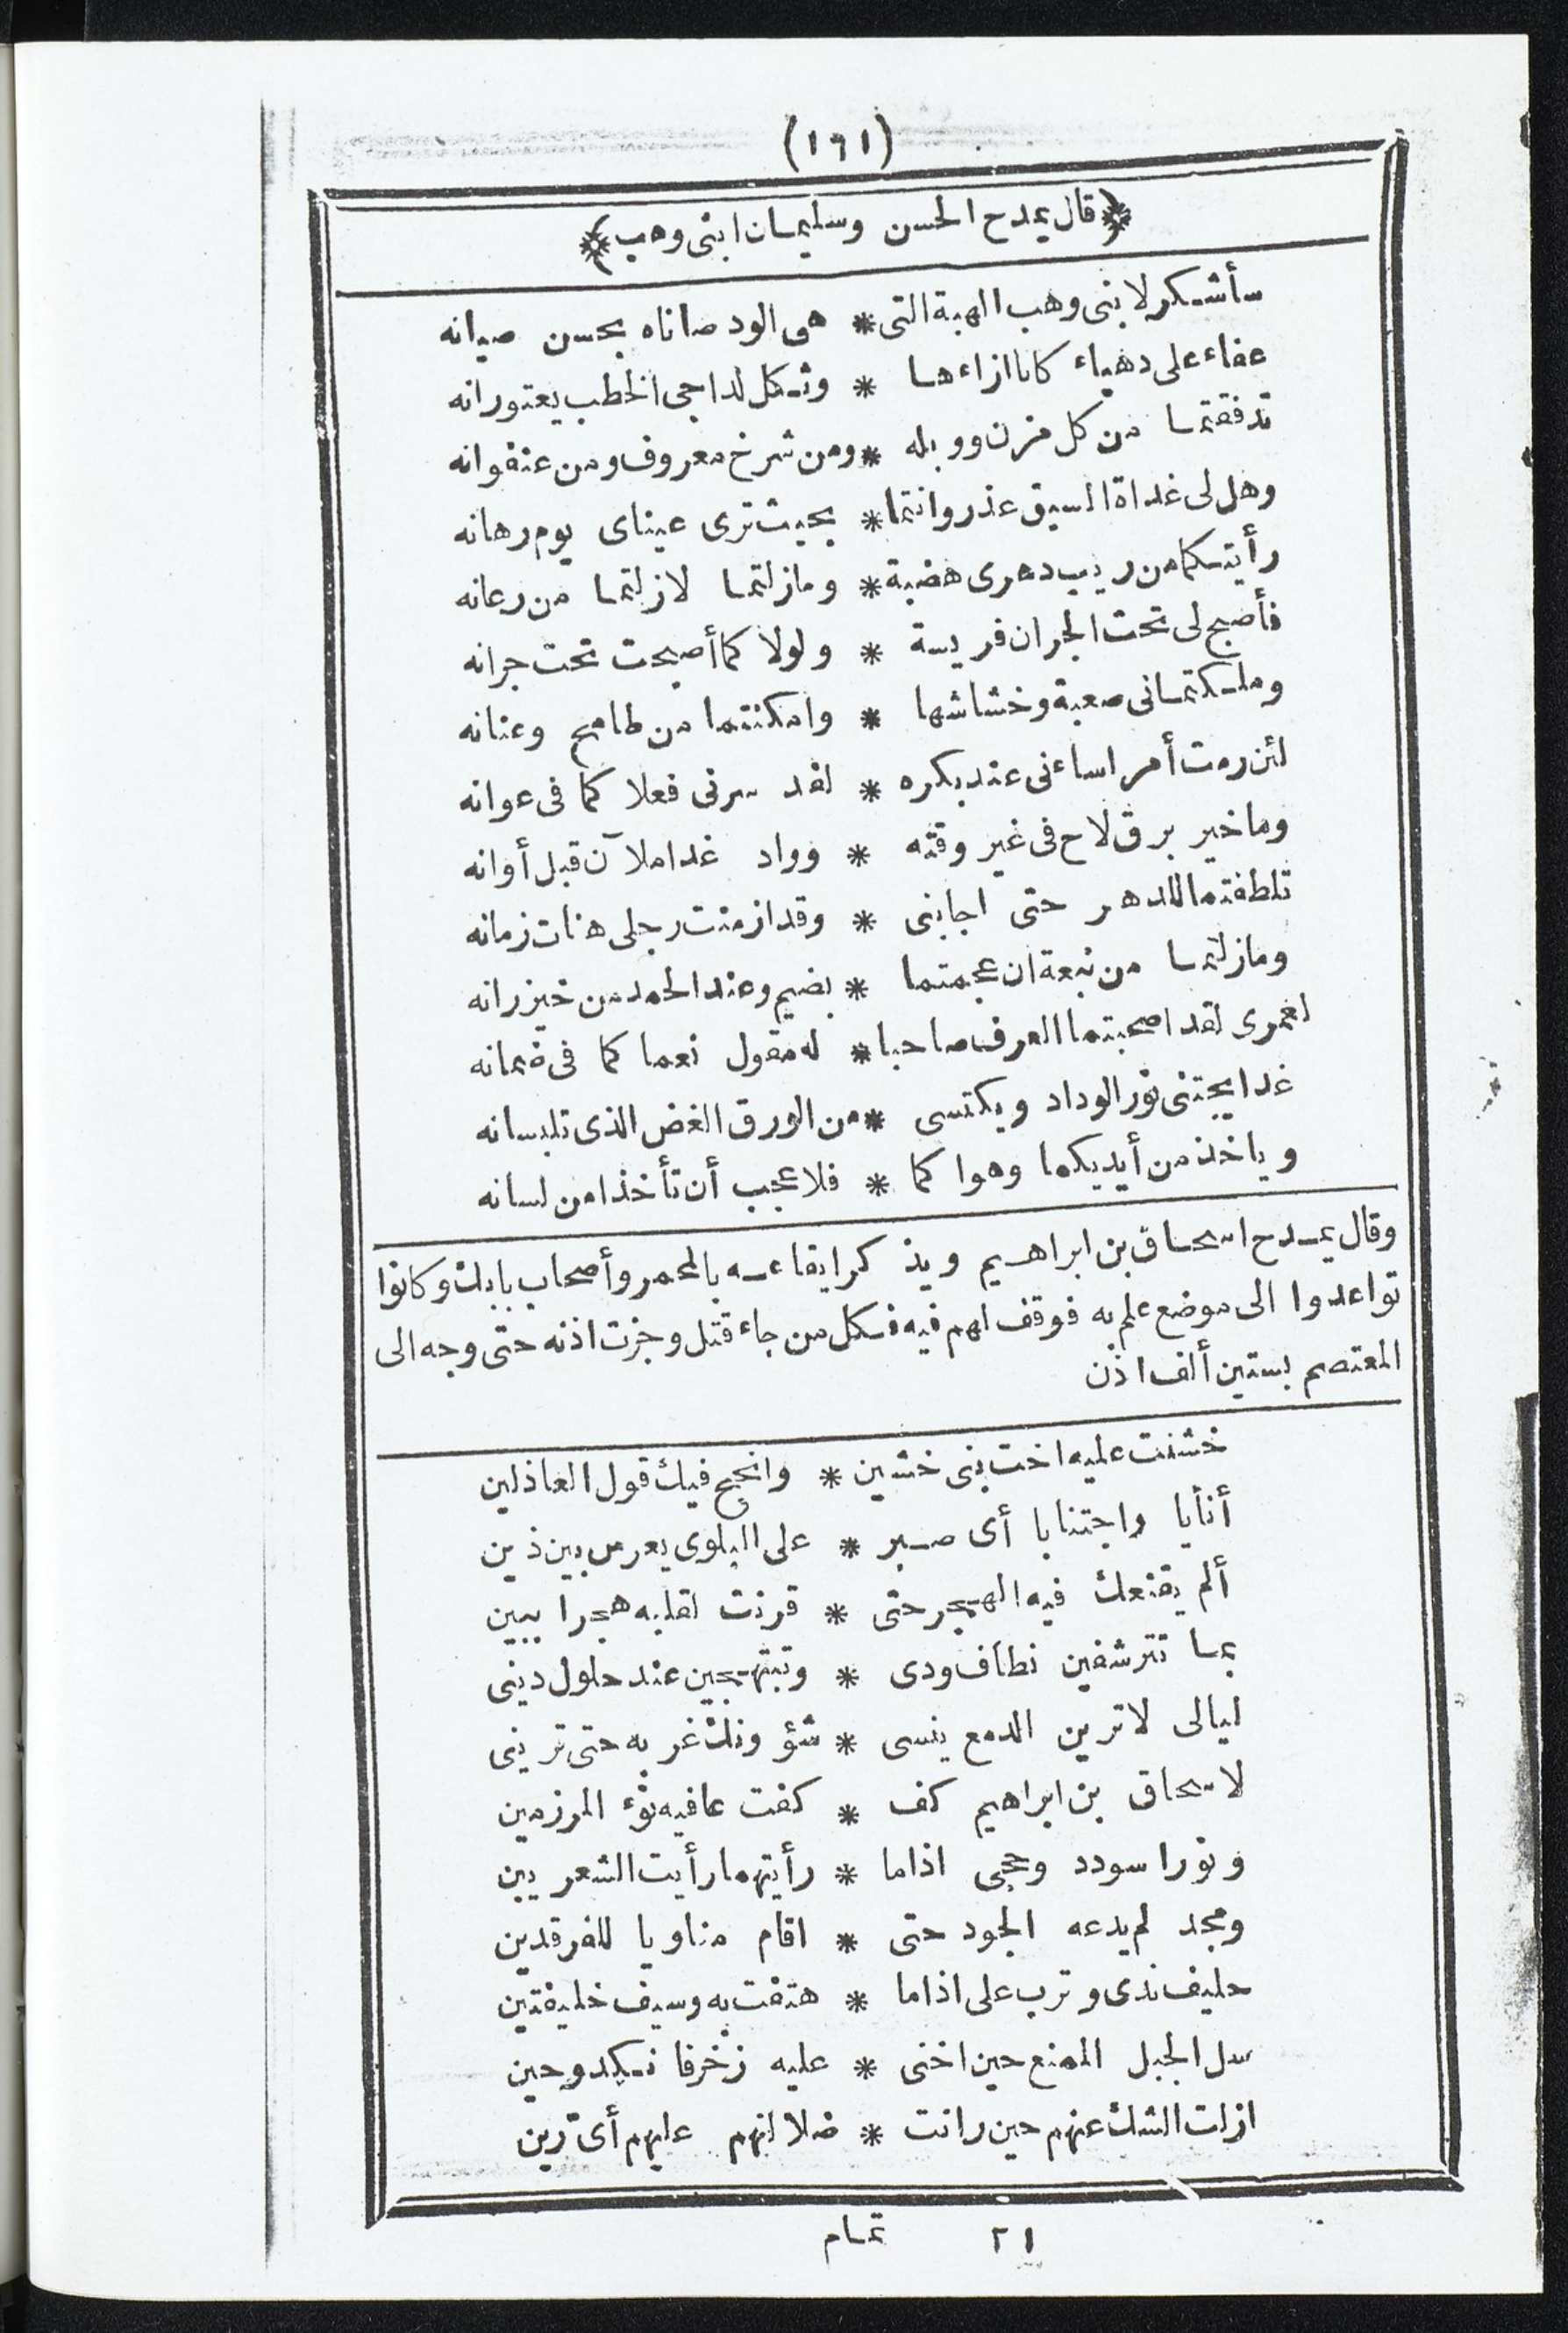 (١٦١)
﴿قال يمدح الحسن وسليمان ابنى وهب﴾
سأشكر لابنى وهب الهبة التى * هى الود صاناه بحسن صيانه
عفاء على دهياء كانا ازاءها * وثكل لداجى الخطب يعتورانه
تدفقتما من كل مزن ووبله * ومن شرخ معروف ومن عنفوانه
وهل لى غداة السبق عذر وانتما * بحيث ترى عيناى يوم رهانه
رأيتكما من ريب دهرى هضبة * ومازلتما لازلتما من رعانه
فأصبح لى تحت الجران فريسة * ولولا كما أصبحت تحت جرانه
وملكتمانى صعبة وخشاشها * وامكنتما من طامح وعنانه
لئن رمت أمرا ساءنى عند بكره * لقد سرنى فعلا كما فى عوانه
وماخير برق لاح فى غير وقته * وواد غدا ملآن قبل أوانه
تلطفتما للدهر حتى اجابنى * وقد ازمنت رجلى هنات زمانه
ومازلتما من نبعة ان عجمتما * بضيم وعند الحمد من خيزرانه
لعمرى لقد اصحبتما العرف صاحبا * له مقول نعما كما فى ضمانه
غدا يجتنى نور الوداد ويكتسى * من الورق الغض الذى تلبسانه
وياخذ من أيديكما وهوا كما * فلا عجب أن تأخذا من لسانه
وقال يمدح اسحاق بن ابراهيم ويذكر ايقاعه بالمحمر وأصحاب بابك وكانوا
تواعدوا الى موضع علم به فوقف لهم فيه فكل من جاء قتل وجزت اذنه حتى وجه الى
المعتصم بستين ألف اذن
خشنت عليه اخت بنى خشين * وانجح فيك قول العاذلين
أنأيا واجتنابا أى صبر * على البلوى يعرس بين ذين
ألم يقنعك فيه الهجر حتى * قرنت لقلبه هجرا ببين
بما تترشفين نطاف ودى * وتبتهجين عند حلول دينى
ليالى لاترين الدمع ينسى * شؤونك غربه حتى ترينى
لاسحاق بن ابراهيم كف * كفت عافيه نوء المرزمين
ونورا سودد وحجى اذاما * رأيتهما رأيت الشعريين
ومجد لم يدعه الجود حتى * اقام مناويا للفرقدين
حليف ندى وترب على اذاما * هتفت به وسيف خليفتين
سل الجبل الممنع حين اخنى * عليه زخرفا نكد وحين
ازلت الشك عنهم حين رانت * ضلالتهم عليهم أى رين
٢١ تمام